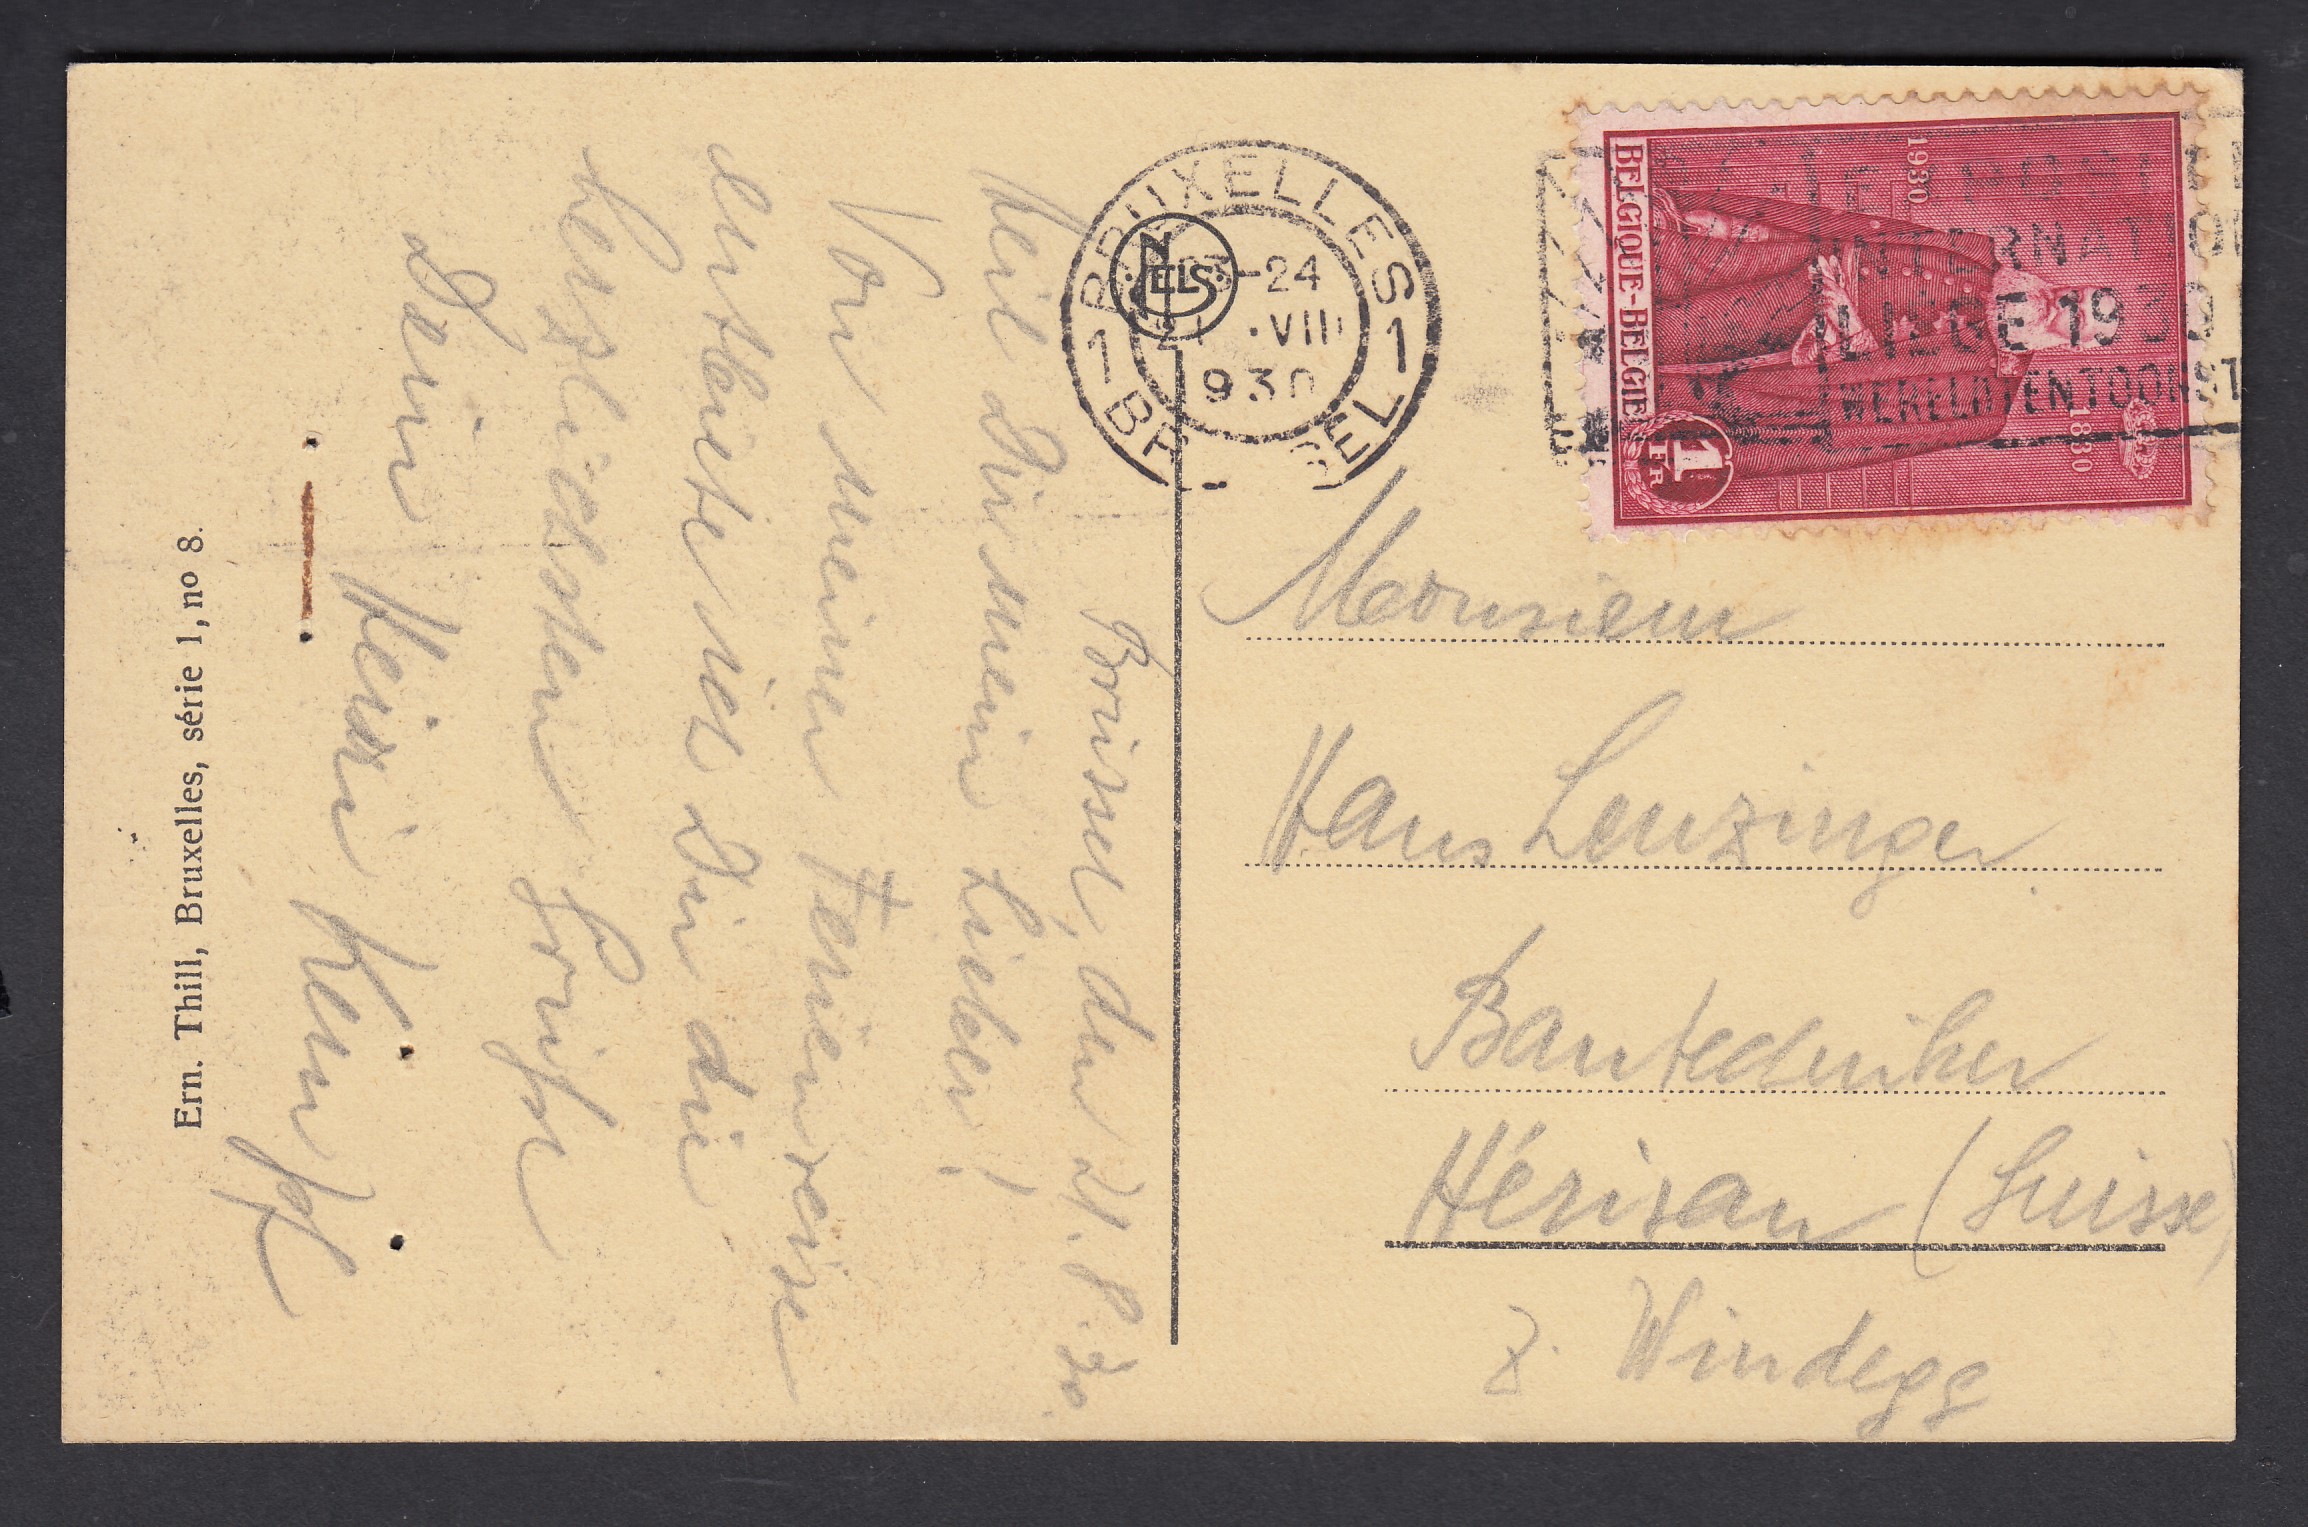 Ern. Thill, Bruxelles, série 1, no 8.
Brüssel, den 21. 8. 30.
Heil Dir mein Lieber!
Von meiner Ferienreise
entbiete ich Dir die
herzlichsten Grüsse
Dein Heini Kempf
NELS
BRUXELLES
23-24
21 .VIII
930
1 1
BR SEL
1930
BELGIQUE-BELGIE
1830
1 FR
INTERNATIO
LIEGE 1930
WERELDTENTOONST
Monsieur
Hans Leuzinger
Bautechniker
Hérisau (Suisse)
z. Windegg